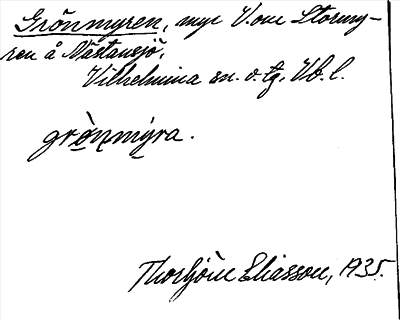 Grönmyren, myr V. om Stormy-
ren å Nästansjö,
Vilhelmina sn. o. tg. Vb. l.
grò̱nmýra.
Thorbjörn Eliasson, 1935.